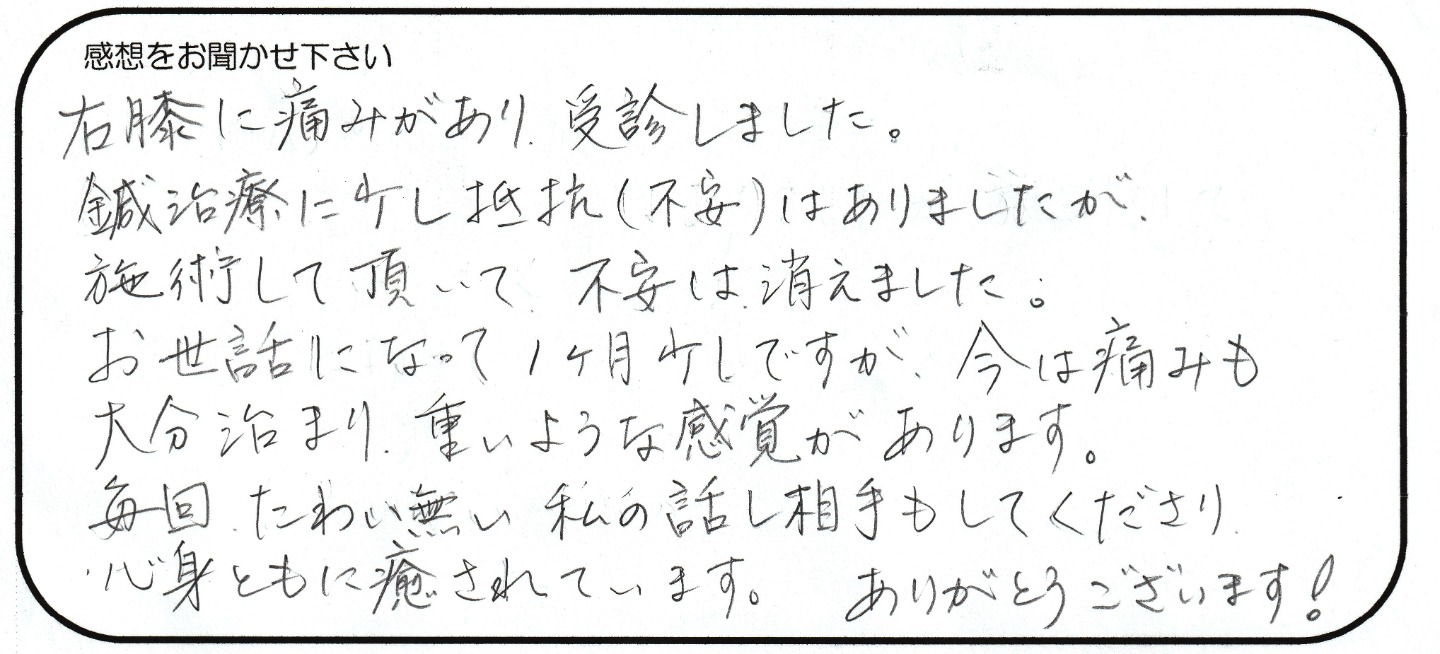 感想をお聞かせ下さい
右膝に痛みがあり、受診しました。
鍼治療に少し抵抗(不安)はありましたが、
施術して頂いて、不安は消えました。
お世話になって1ヶ月少しですが、今は痛みも
大分治まり、重いような感覚があります。
毎回、たわい無い私の話し相手もしてくださり、
心身ともに癒されています。 ありがとうございます!